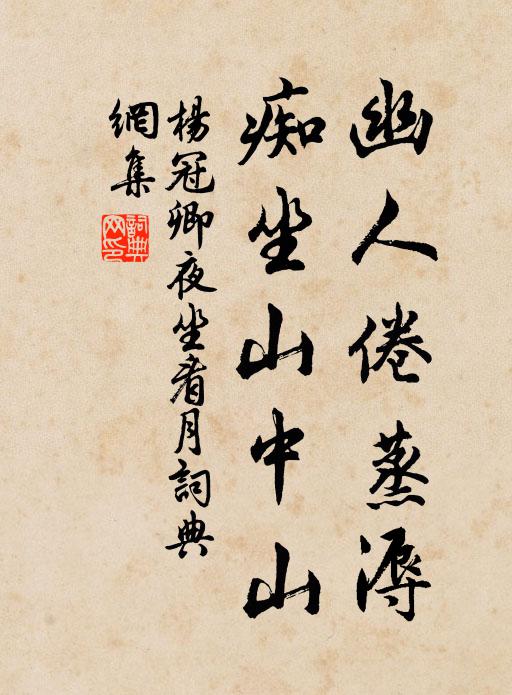 幽人倦蒸溽
痴坐山中山
楊冠卿夜坐看月詞典
網集
詞典
网印